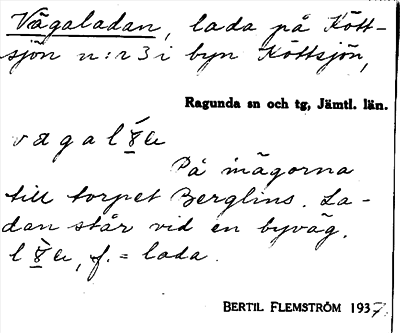 Vägaladan, lada på Kött-
sjön n:r 3 i byn Köttsjön,
Ragunda sn och tg, Jämtl. län.
På mägorna
till torpet Berglins. La-
dan står vid en byväg.
f. = lada.
BERTIL FLEMSTRÖM 1937.